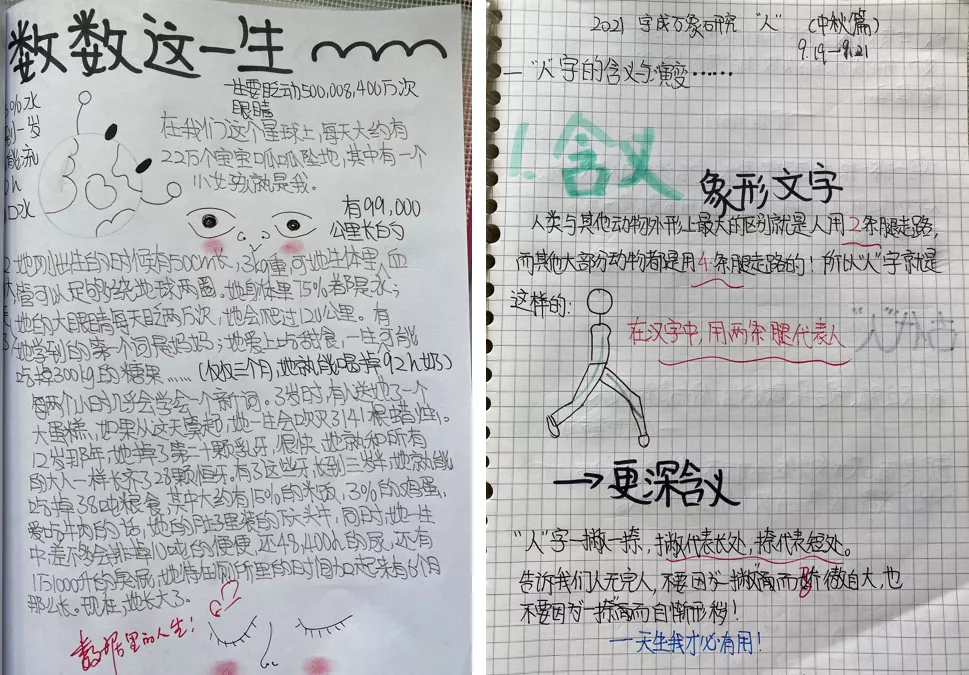 数数这一生
一生要眨动500,008,400万次
眼睛
在我们这个星球上,每天大约有
22万个宝宝呱呱坠地,其中有一个
小女孩就是我。
有99,000
公里长的
她刚出生的时候有500mL,3kg重,可她生体里,血
管可以足够绕地球两圈。她身体里75%都是水;
她的大眼睛每天眨两万次,她会爬过120公里。有
她学到的第一个词是妈妈;她爱上吃甜食,一生可能
吃掉300kg的糖果……(仅仅三个月,她就能喝掉92h奶)
每两个小时几乎会学会一个新词。3岁时,有人送她了一个
大蛋糕,如果从这天算起,她一生会吹灭3141根蜡烛。
12岁那年,她掉了第二十颗乳牙,很快,她就和所有
的大人一样长齐了28颗恒牙。有了这些牙
吃掉38吨粮食,其中大约有15%的米饭,3%的鸡蛋,
爱吃牛肉的话,她的肚子里装的下六头牛,同时,她一生
中差不多会排掉10吨的便便,还48,400h的尿,还有
151000升的臭屁,她待在厕所里的时间加起来有6个月
那么长。现在,她长大了。
数据里的人生!
2021 字成万象研究 “人” (中秋篇)
9.19—9.21
一“人”字的含义与演变……
1.含义
象形文字
人类与其他动物外形上最大的区别就是人用2条腿走路,
而其他大部分动物都是用4条腿走路的!所以“人”字就是
这样的:
在汉字中,用两条腿代表人
→更深含义
“人”字一撇一捺,撇代表长处,捺代表短处。
告诉我们人无完人,不要因为一撇高而骄傲自大,也
不要因为一捺高而自惭形秽!
—天生我才必有用!